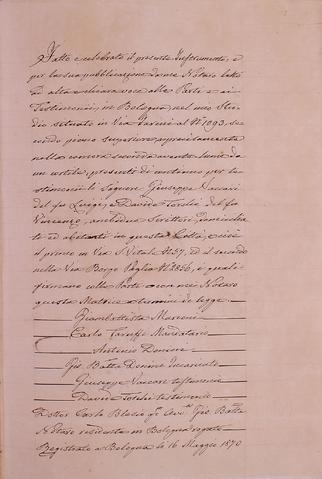 Fatto e celebrato il presente Instrumento, e
per la sua pubblicazione da me Notaro letto
ad alta e chiara voce alle Parti e ai
Testimoni, in Bologna, nel mio Stu-
dio situato in Via Farini al N. 1093, se-
condo piano superiore, e precisamente
nella camera seconda avente lume da
un cortile, presenti di continuo per te-
stimoni li Signori Giuseppe Vaccari
del fu Luigi, e Davide Torchi del fu
Vincenzo, ambidue Scrittori,
ed abitanti in questa Città, cioè
il primo in Via S. Vitale N. 57, ed il secondo
nella Via Borgo Paglia N. 2856, e quali
firmano colle Parti e con me Notaro
questa Matrice a termini di legge.
Giambattista Marconi
Carlo Faruffi Mandatario
Antonio Donini
Gio. Batta Donini Incaricato
Giuseppe Vaccari testimonio
Davide Torchi testimonio
Dottor Carlo Blesio q. Avv. Gio. Batta
Notaro residente in Bologna rogato
Registrato a Bologna li 16 Maggio 1870